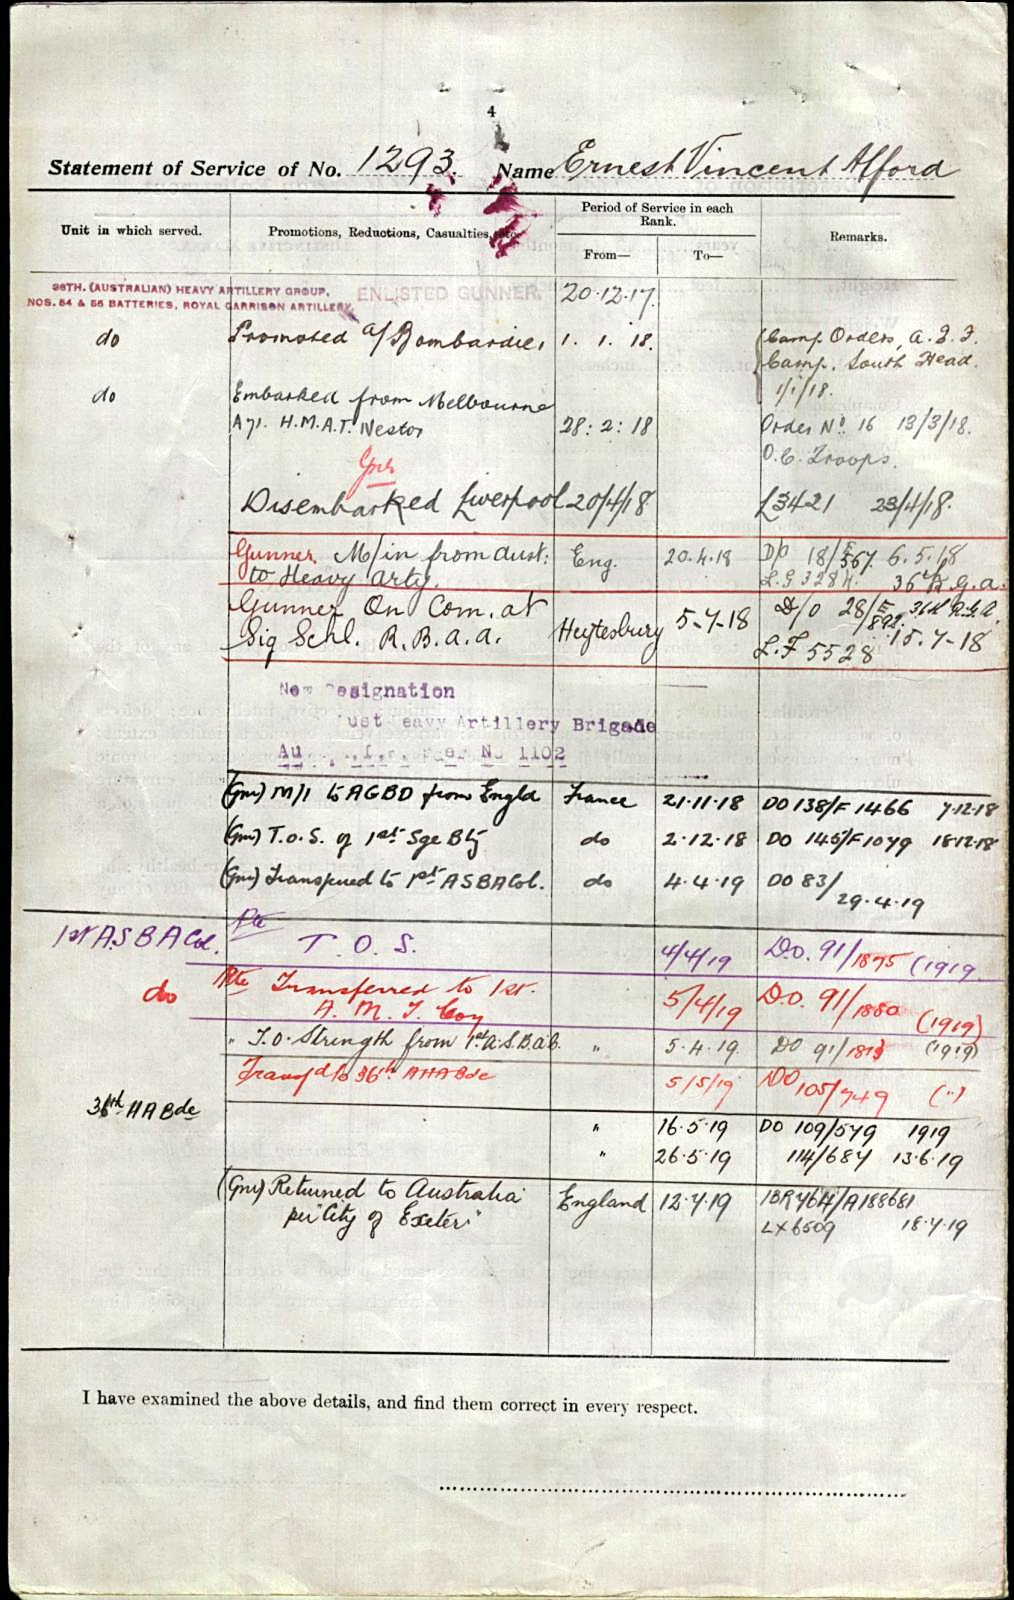 4
Statement of Service of No. 1293. Name Ernest Vincent Alford
Unit in which served.
Promotions, Reductions, Casualties, etc.
Period of Service in each Rank.
From—
To—
Remarks.
36TH. (AUSTRALIAN) HEAVY ARTILLERY GROUP, ENLISTED GUNNER. 20.12.17.
NOS. 54 & 55 BATTERIES, ROYAL GARRISON ARTILLERY
do Promoted a/Bombardier 1. 1. 18. Camp Orders, A.I.F.
Camp. South Head.
1/1/18.
do Embarked from Melbourne
A71. H.M.A.T. Nestor 28:2:18 Order No. 16 13/3/18.
O.C. Troops.
Gnr
Disembarked Liverpool 20/4/18 L3421 23/4/18.
Gunner. M/in from Aust: Eng. 20.4.18 D/O 18/E 567. 6.5.18
to Heavy Arty. L.G 3284. 36th R.G.A.
Gunner On Com. at Heytesbury 5-7-18 D/O 28/E 892. 36th R.G.A.
Sig Schl. R.B.A.A. L.F 5528 15.7-18
New Designation
ust eavy Artillery Brigade
Au 1102
(Gnr) M/I to AGBD from Engld France 21.11.18 DO 138/F 1466 7.12.18
(Gnr) T.O.S. of 1st Sge Bty do 2.12.18 DO 145/F1079 18.12.18
(Gnr) Transferred to 1st ASBACol. do 4.4.19 DO 83/
29.4.19
1st A.S.B.A Col. Pte T. O. S. 4/4/19 D.O. 91/1875 (1919.
do Pte Transferred to 1st. 5/4/19 D.O. 91/1880 (1919)
A. M. T. Coy
" T.O. Strength from 1st A.S.B.A.C. " 5.4.19. DO 91/1813 (1919)
Transfd to 36th AHABde 5/5/19 DO 105/749 (")
36th HABde
" 16.5.19 DO 109/579 1919
" 26.5.19 114/684 13.6.19
(Gnr) Returned to Australia England 12.7.19 1BR464/A188681
per "City of Exeter" LX6509 18.7.19
I have examined the above details, and find them correct in every respect.